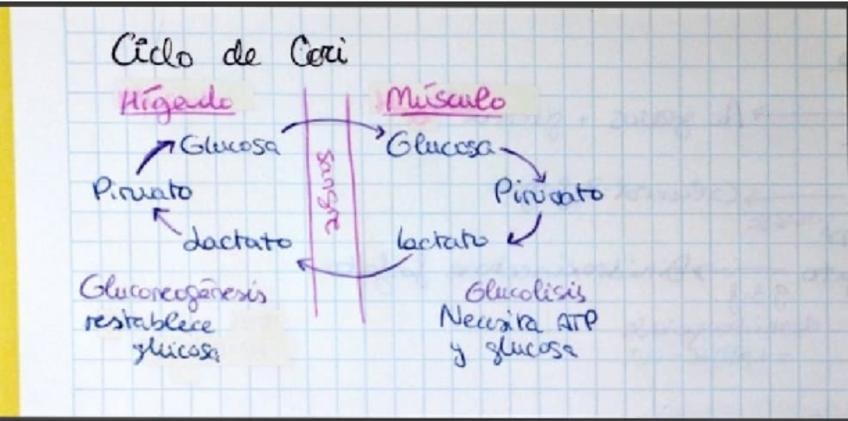 Ciclo de Cori
Hígado
Músculo
Glucosa
Sangre
Glucosa
Piruvato
Piruvato
Lactato
lactato
Gluconeogénesis
restablece
glucosa
Glucolisis
Necesita ATP
y glucosa